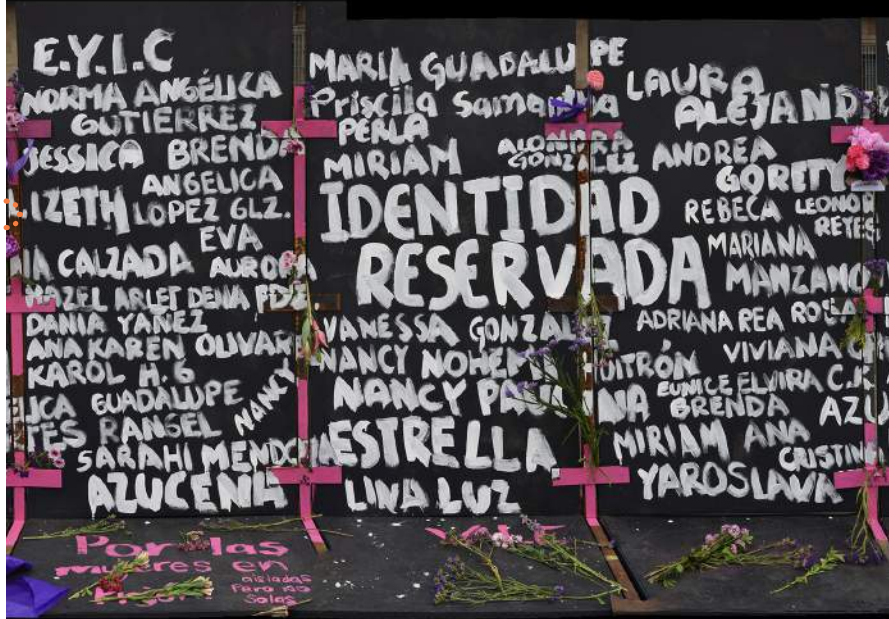 E.Y.I.C
NORMA ANGÉLICA
GUTIERREZ
JESSICA BRENDA
ANGELICA
IZETH LOPEZ GLZ.
EVA
CALZADA AURORA
HAZEL ARLET DENA FDZ
DANIA YAÑEZ
ANA KAREN OLIVAR
KAROL H. G
GUADALUPE
NANCY
RANGEL
SARAHI MENDOZA
AZUCENA
MARIA GUADALUPE
Priscila Samantha
PERLA
ALONDRA
GONZALEZ
MIRIAM
IDENTIDAD
RESERVADA
VANESSA GONZALEZ
NANCY NOHEMI
NANCY
ESTRELLA
LINA LUZ
LAURA
ALEJAND
ANDREA
GORETY
REBECA LEONOR
REYES
MARIANA
MANZANO
ADRIANA REA
VIVIANA
UITRÓN
EUNICE ELVIRA C.
BRENDA AZU
MIRIAM ANA
CRISTIN
YAROSLAVA
Por las
mujeres en
aisladas
Pero no
Solas